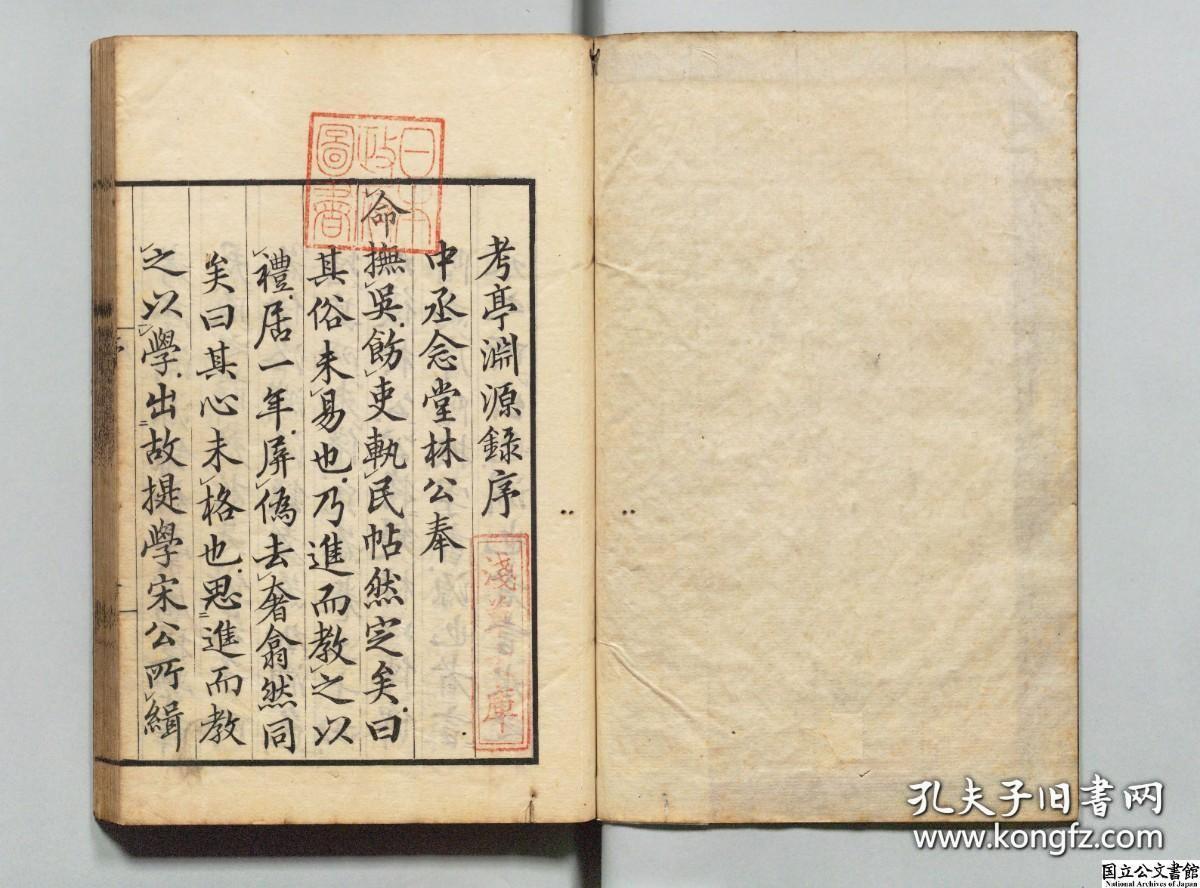 考亭淵源錄序
中丞念堂林公奉
命撫吳飭吏軌民帖然定矣曰
其俗未易也乃進而教之以
禮居一年屏偽去奢翕然同
矣曰其心未格也思進而教
之以學出故提學宋公所緝
日本
政府
圖書
淺草文庫
序
一
孔夫子旧书网
www.kongfz.com
国立公文書館
National Archives of Japan